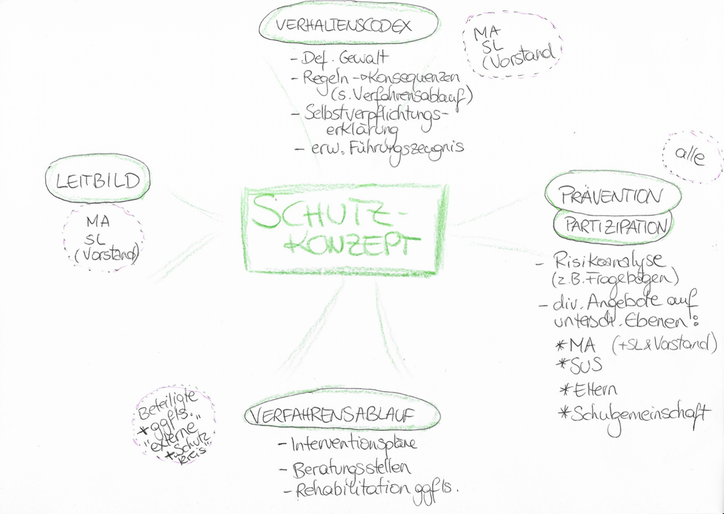 VERHALTENSCODEX
- Def. Gewalt
- Regeln -> Konsequenzen
(s. Verfahrensablauf)
- Selbstverpflichtungs-
erklärung
- erw. Führungszeugnis
MA
SL
(Vorstand
LEITBILD
MA
SL
(Vorstand)
SCHUTZ-
KONZEPT
alle
PRÄVENTION
PARTIZIPATION
- Risikoanalyse
(z.B. Fragebögen)
- div. Angebote auf
untersch. Ebenen:
*MA (+SL & Vorstand)
*SUS
*Eltern
*Schulgemeinschaft
VERFAHRENSABLAUF
- Interventionspläne
- Beratungsstellen
- Rehabilitation ggfls.
Beteiligte
*ggfls.
"externe"
*"Schutz
kreis"